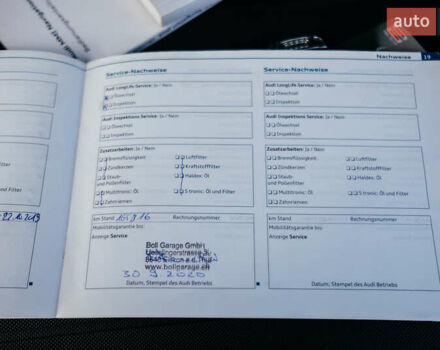 auto
Audi MMI Navigation
Nachweise 19
Service-Nachweise
Audi LongLife Service: Ja / Nein
Ölwechsel
Inspektion
Audi Inspektions Service: Ja / Nein
Ölwechsel
Inspektion
Zusatzarbeiten: Ja / Nein
Bremsflüssigkeit
Luftfilter
Zündkerzen
Kraftstofffilter
Staub- und Pollenfilter
Haldex: Öl
Multitronic: Öl
S tronic: Öl und Filter
Zahnriemen
km Stand
Rechnungsnummer
Mobilitätsgarantie bis:
Anzeige Service
Boll Garage GmbH
www.bollgarage.ch
30 9 2020
Datum, Stempel des Audi Betriebs
Service-Nachweise
Audi LongLife Service: Ja / Nein
Ölwechsel
Inspektion
Audi Inspektions Service: Ja / Nein
Ölwechsel
Inspektion
Zusatzarbeiten: Ja / Nein
Bremsflüssigkeit
Luftfilter
Zündkerzen
Kraftstofffilter
Staub- und Pollenfilter
Haldex: Öl
Multitronic: Öl
S tronic: Öl und Filter
Zahnriemen
km Stand
Rechnungsnummer
Mobilitätsgarantie bis:
Anzeige Service
Datum, Stempel des Audi Betriebs